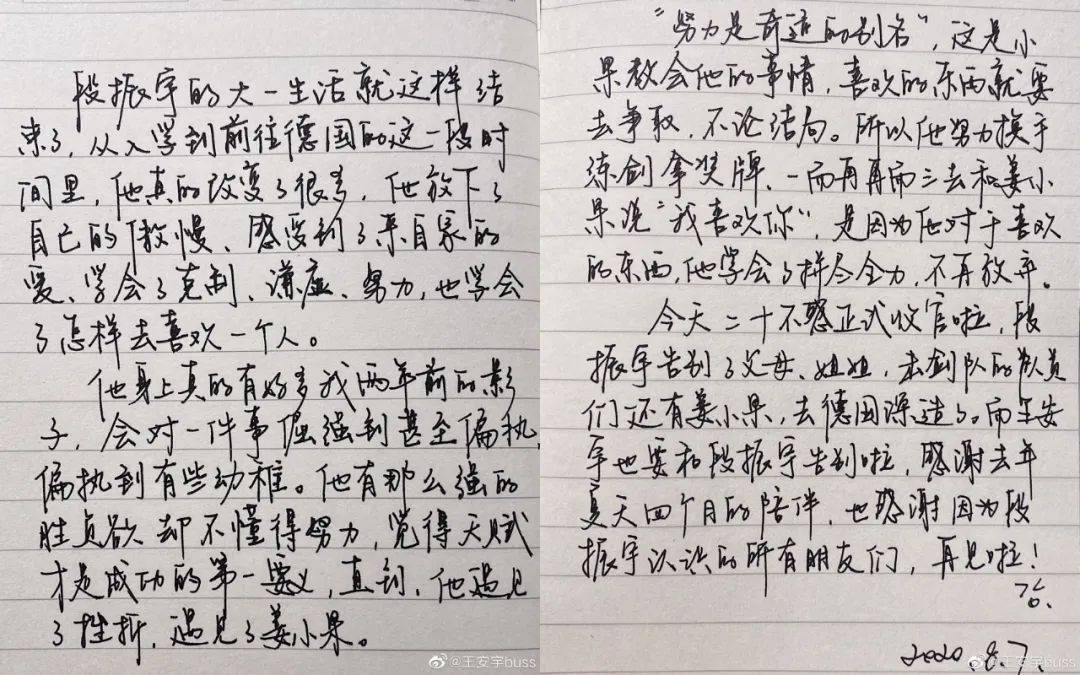 段振宇的大一生活就这样结
束了，从入学到前往德国的这一段时
间里，他真的改变了很多，他放下了
自己的傲慢、感受到了来自家的
爱、学会了克制、谦虚、努力，也学会
了怎样去喜欢一个人。
他身上真的有好多我两年前的影
子，会对一件事倔强到甚至偏执，
偏执到有些幼稚。他有那么强的
胜负欲却不懂得努力，觉得天赋
才是成功的第一要义，直到，他遇见
了挫折，遇见了姜小果。
@王安宇buss
“努力是奇迹的别名”，这是小
果教会他的事情，喜欢的东西就要
去争取，不论结局。所以他努力换手
练剑拿奖牌、一而再再而三去和姜小
果说“我喜欢你”，是因为他对于喜欢
的东西，他学会了拼尽全力，不再放弃。
今天二十不惑正式收官啦，段
振宇告别了父母、姐姐，击剑队的队员
们还有姜小果，去德国深造了。而王安
宇也要和段振宇告别啦，感谢去年
夏天四个月的陪伴，也感谢因为段
振宇认识的所有朋友们，再见啦！
2020.8.7.
@王安宇buss